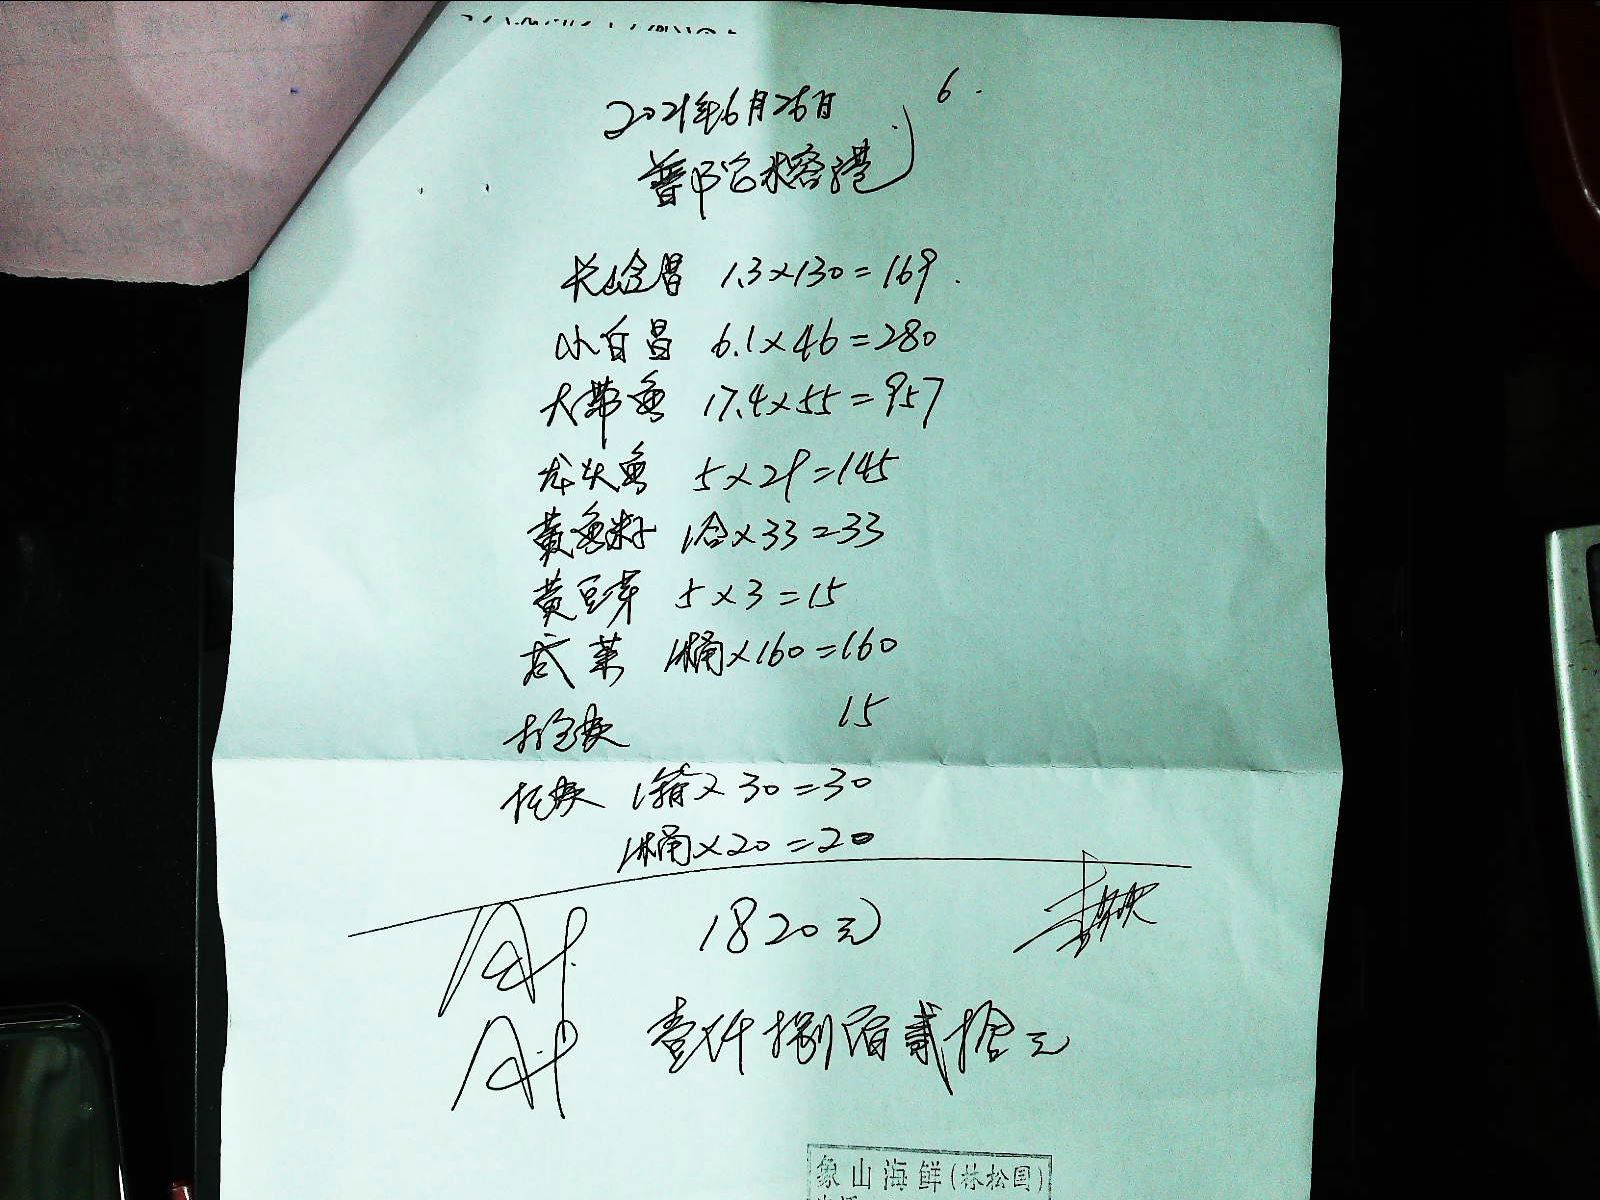 6.
2021年6月26日
普陀水榕港
长山金昌 1.3×130=169.
小白昌 6.1×46=280
大带鱼 17.4×55=957
龙头鱼 5×29=145
黄鱼籽 1合×33=33
黄豆芽 5×3=15
咸菜 1桶×160=160
打包费 15
托费 1箱×30=30
1桶×20=20
1820元
壹仟捌佰贰拾元
象山海鲜(林松国)